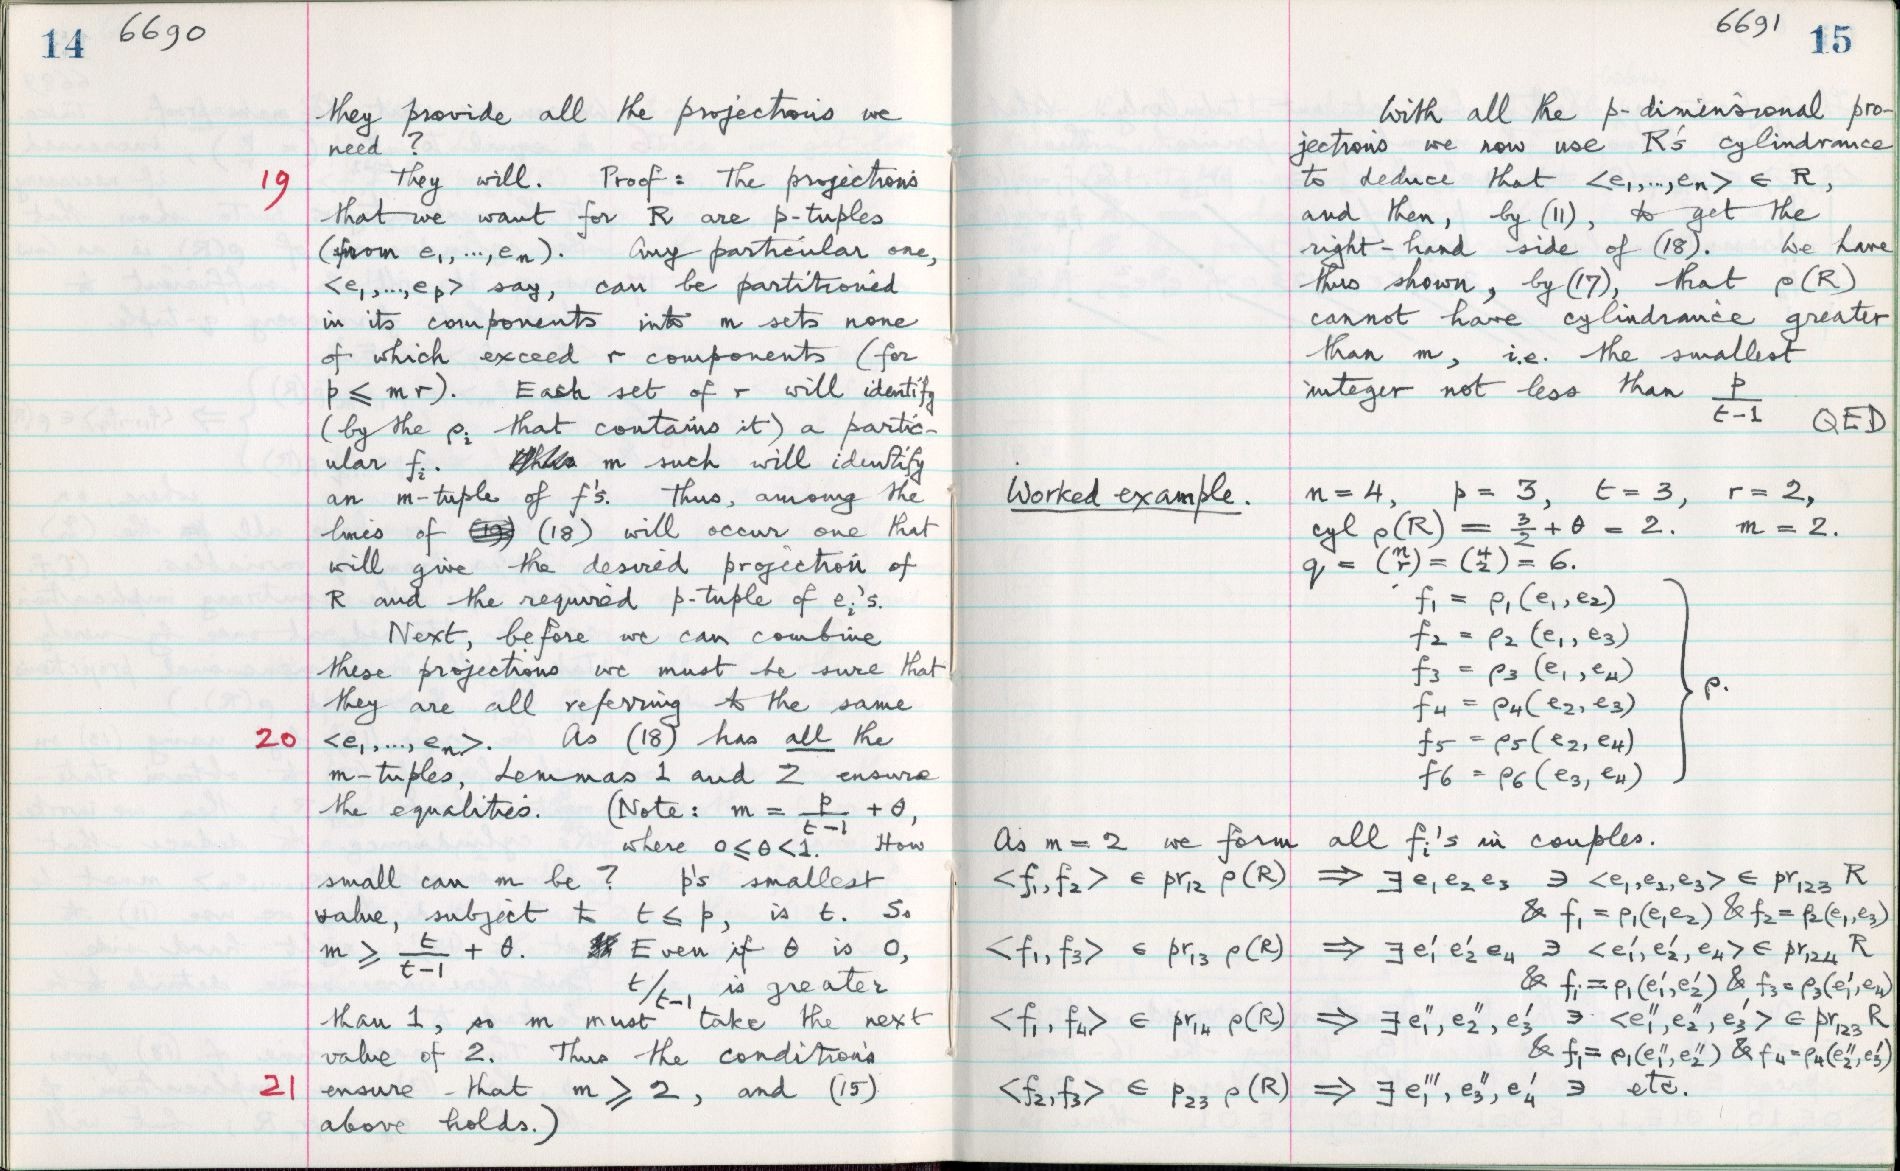 14 6690
they provide all the projections we
need ?
19 They will. Proof: The projections
that we want for R are p-tuples
(from e₁,...,eₙ). Any particular one,
<e₁,...,eₚ> say, can be partitioned
in its components into m sets none
of which exceed r components (for
p ⩽ mr). Each set of r will identify
(by the ρᵢ that contains it) a partic-
ular fᵢ. m such will identify
an m-tuple of f's. Thus, among the
lines of (18) will occur one that
will give the desired projection of
R and the required p-tuple of eᵢ's.
Next, before we can combine
these projections we must be sure that
they are all referring to the same
20 <e₁,...,eₙ>. As (18) has all the
m-tuples, Lemmas 1 and 2 ensure
the equalities. (Note: m = p/(t-1) + θ,
where 0⩽θ<1. How
small can m be? p's smallest
value, subject to t⩽p, is t. So
m ⩾ t/(t-1) + θ. Even if θ is 0,
t/t-1 is greater
than 1, so m must take the next
value of 2. Thus the conditions
21 ensure that m ⩾ 2, and (15)
above holds.)
6691 15
With all the p-dimensional pro-
jections we now use R's cylindrance
to deduce that <e₁,...,eₙ> ∈ R,
and then, by (11), to get the
right-hand side of (18). We have
thus shown, by (17), that ρ(R)
cannot have cylindrance greater
than m, i.e. the smallest
integer not less than p/(t-1)
QED
Worked example. n=4, p=3, t=3, r=2,
cyl ρ(R) = 3/2 + θ = 2. m=2.
q = (n r) = (4 2) = 6.
f₁ = ρ₁(e₁,e₂)
f₂ = ρ₂(e₁,e₃)
f₃ = ρ₃(e₁,e₄)
f₄ = ρ₄(e₂,e₃)
f₅ = ρ₅(e₂,e₄)
f₆ = ρ₆(e₃,e₄)
} ρ.
As m=2 we form all fᵢ's in couples.
<f₁,f₂> ∈ pr₁₂ ρ(R) ⇒ ∃ e₁e₂e₃ ∋ <e₁,e₂,e₃> ∈ pr₁₂₃ R
& f₁ = ρ₁(e₁e₂) & f₂ = ρ₂(e₁,e₃)
<f₁,f₃> ∈ pr₁₃ ρ(R) ⇒ ∃ e₁′ e₂′ e₄ ∋ <e₁′,e₂′,e₄> ∈ pr₁₂₄ R
& f₁ = ρ₁(e₁′,e₂′) & f₃ = ρ₃(e₁′,e₄)
<f₁,f₄> ∈ pr₁₄ ρ(R) ⇒ ∃ e₁″,e₂″,e₃′ ∋ <e₁″,e₂″,e₃′> ∈ pr₁₂₃ R
& f₁ = ρ₁(e₁″,e₂″) & f₄ = ρ₄(e₂″,e₃′)
<f₂,f₃> ∈ p₂₃ ρ(R) ⇒ ∃ e₁‴,e₃″,e₄′ ∋ etc.